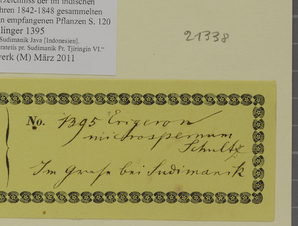 ichniss der im indischen
hren 1842-1848 gesammelten
n empfangenen Pflanzen S. 120
linger 1395
Sudimanik Java [Indonesien].
eratetis pr. Sudimanik Pr. Tjiringin VI."
werk (M) März 2011
21338
No. 1395 Erigeron
microspermum
Schultz
Im Grase bei Sudimanik